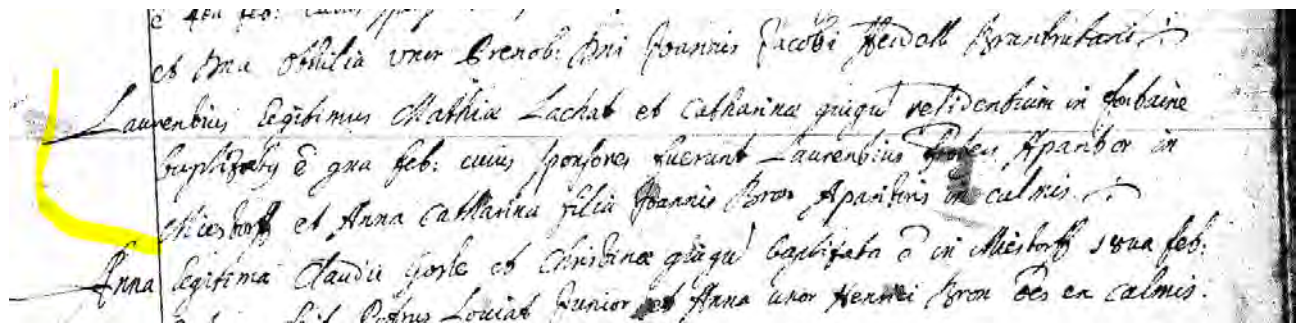 et Dna Ottilia uxor Prenob: Dni Joannis Jacobi Brunbrutani
Laurentius legitimus Mathiæ Lachat et Catharinæ giugu residentium in fontaine
baptizatus ē 9na feb: cuius sponsores fuerunt Laurentius Aparitor in
Miestorff et Anna Catharina filia Joannis Bron Aparitoris in calmis.
Anna legitima Claudii et Christinæ giugu baptizata ē in Miestorff 18va feb:
Petrus Louiat Junior et Anna uxor Henrici Bron oēs ex calmis.